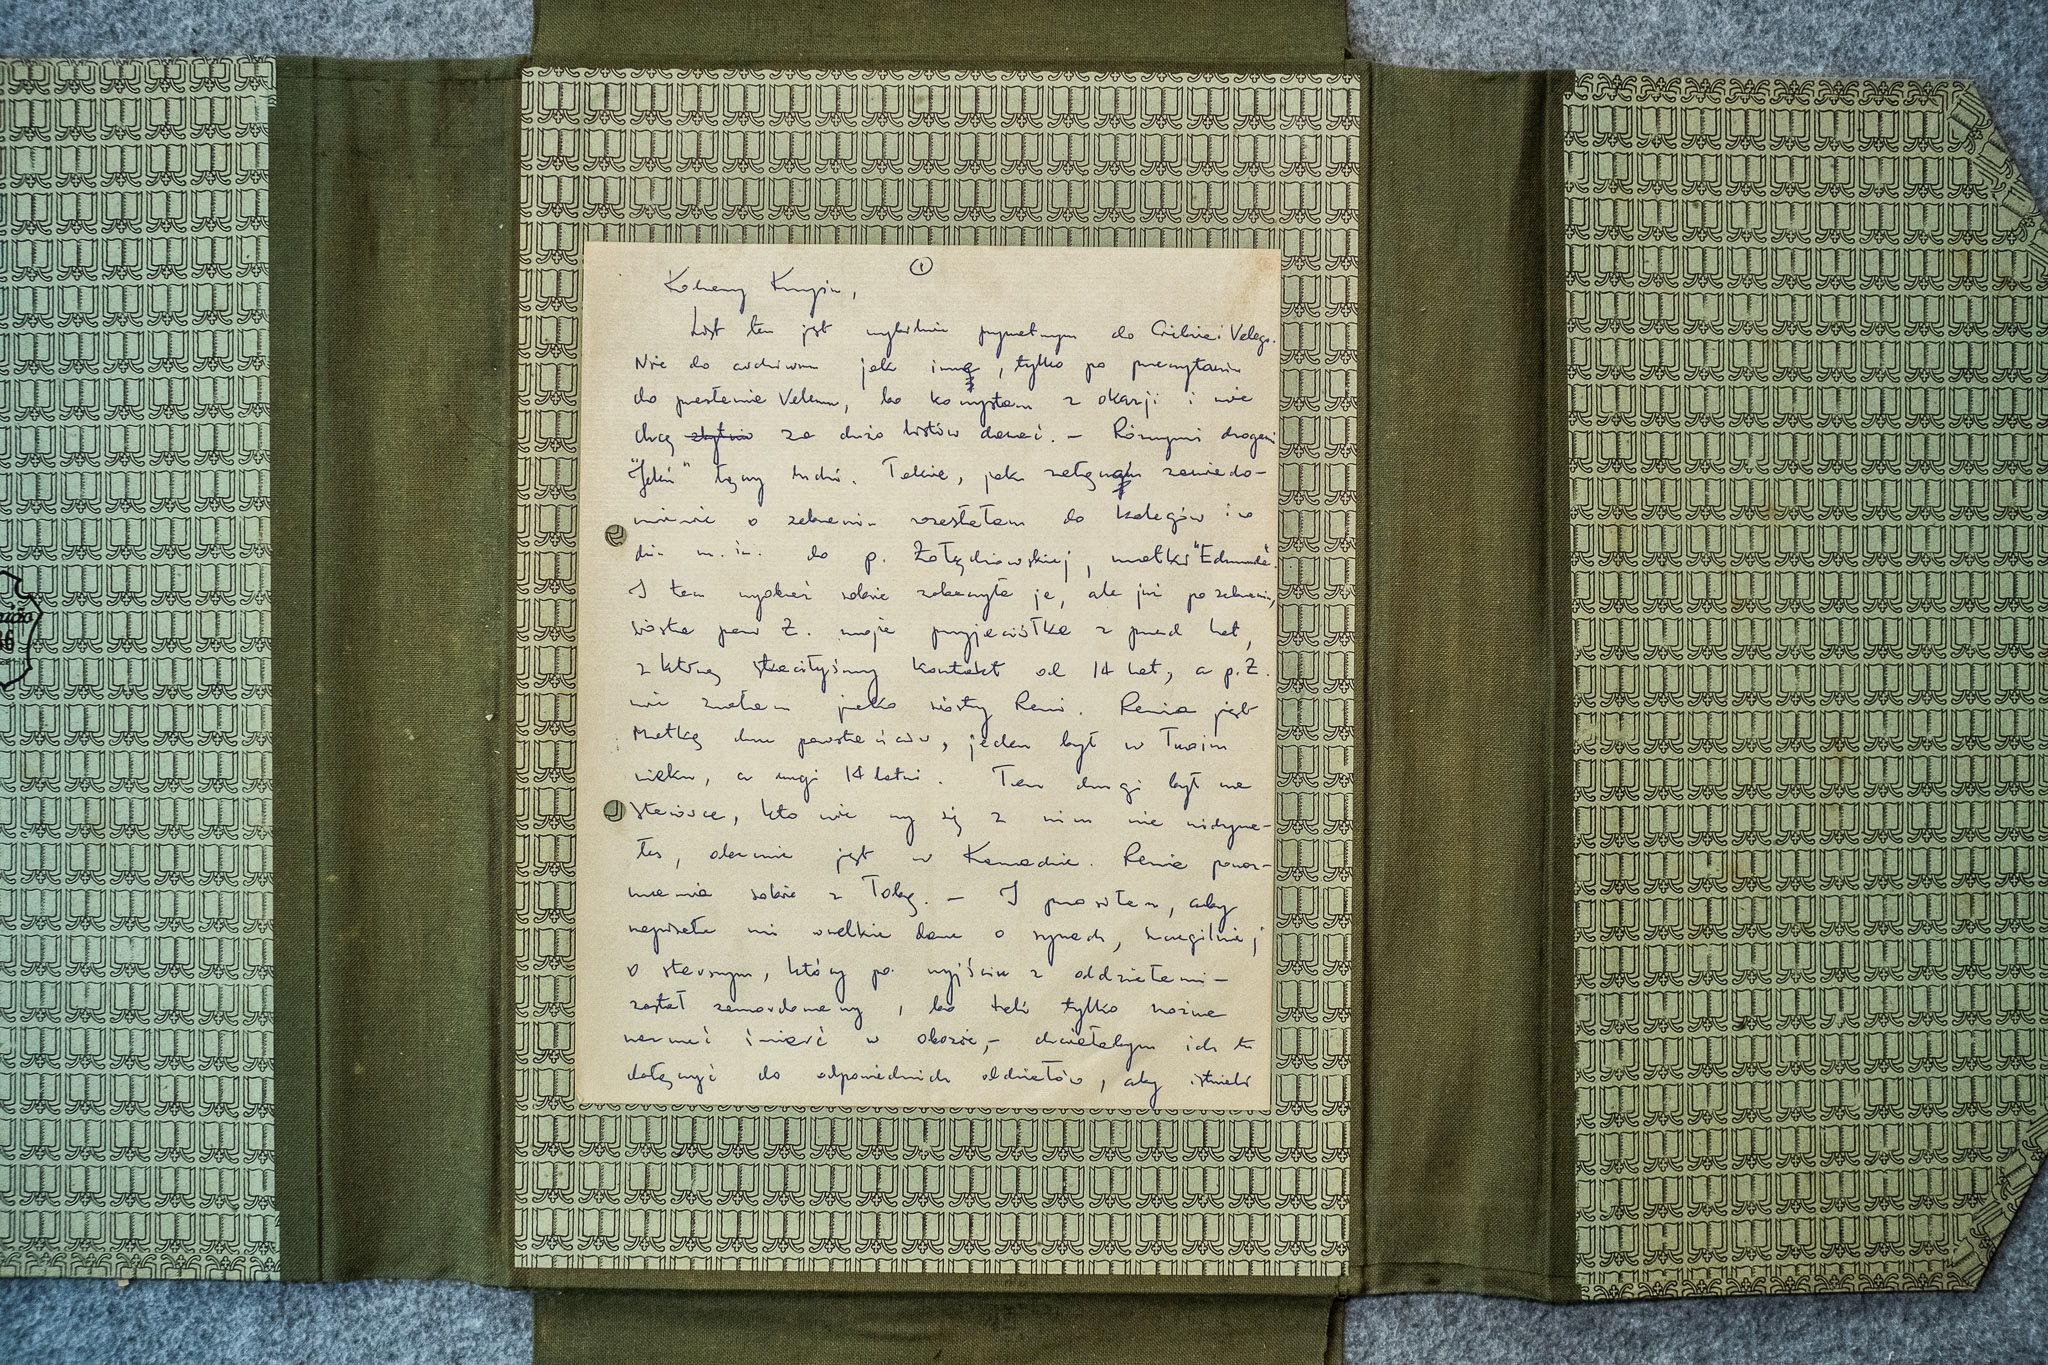 ①
Kochany Krupin,
List ten jest wyłącznie prywatnym do Ciebie i Velego.
Nie do archiwum jak inne, tylko po przeczytaniu
do przesłania Velemu, bo korzystam z okazji i nie
chcę zbytnio za dużo listów dawać. — Różnymi drogami
"Jaki" łączy ludzi. Takie, jak załączam zawiado-
mienie o zebraniu rozesłałam do kolegów i ro
dzin m.in. do p. Żołędziowskiej, matki "Edmunda".
I tam wyobraź sobie zobaczyła je, ale już po zebraniu,
siostra pani Ż. moja przyjaciółka z przed lat,
z którą straciłyśmy kontakt od 14 lat, a p. Ż.
nie znałam jako siostry Reni. Renia jest
Matką dwu powstańców, jeden był w Twoim
wieku, a drugi 14 letni. Ten drugi był na
Starówce, kto wie czy się z nim nie widywa-
łeś, obecnie jest w Kanadzie. Renia poroz-
mawia sobie z Tobą. — I prosiłam, aby
napisała mi wszelkie dane o synach, szczególniej
o starszym, który po wyjściu z oddziałami —
został zamordowany, bo tak tylko można
nazwać śmierć w obozie, — chciałabym ich tu
dołączyć do odpowiednich oddziałów, aby istnieli
36